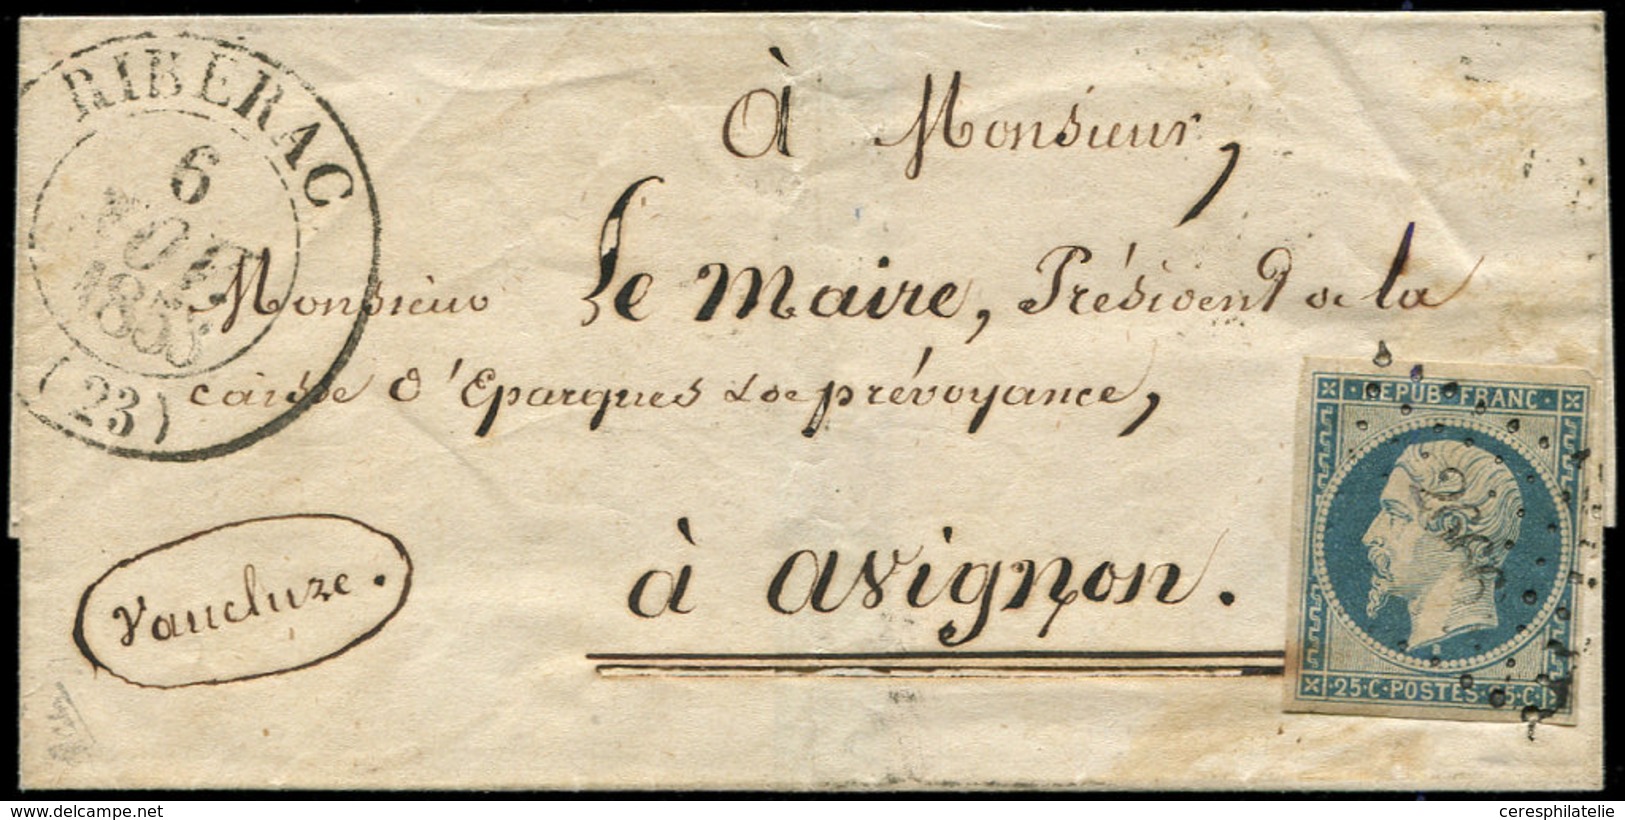 RIBERAC
6
NOV
1853
(23)
à Monsieur,
Monsieur Le Maire, Président de la
caisse d'Epargnes & de prévoyance,
à avignon.
Vaucluze.
REPUB FRANC
25·C·POSTES·25·C·
ceresphilatelie.com